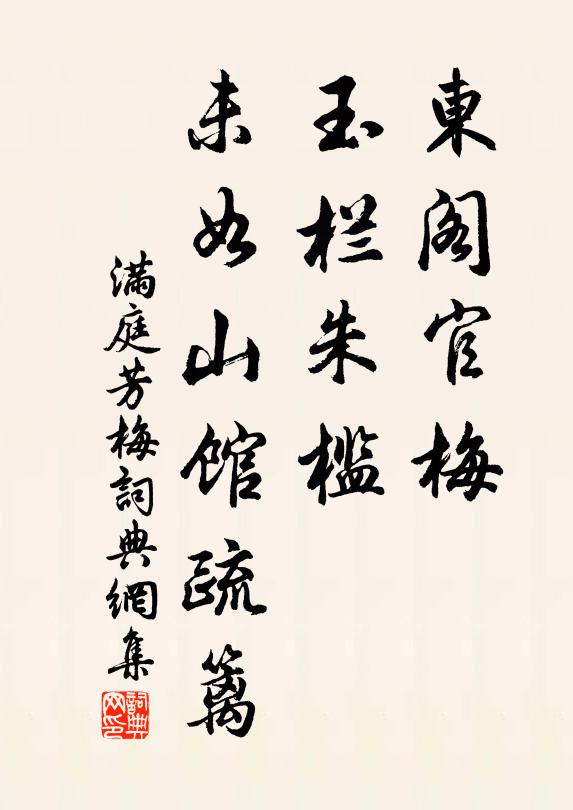 東阁官梅
玉栏朱槛
未如山馆疏篱
满庭芳梅詞典網集
詞典网印